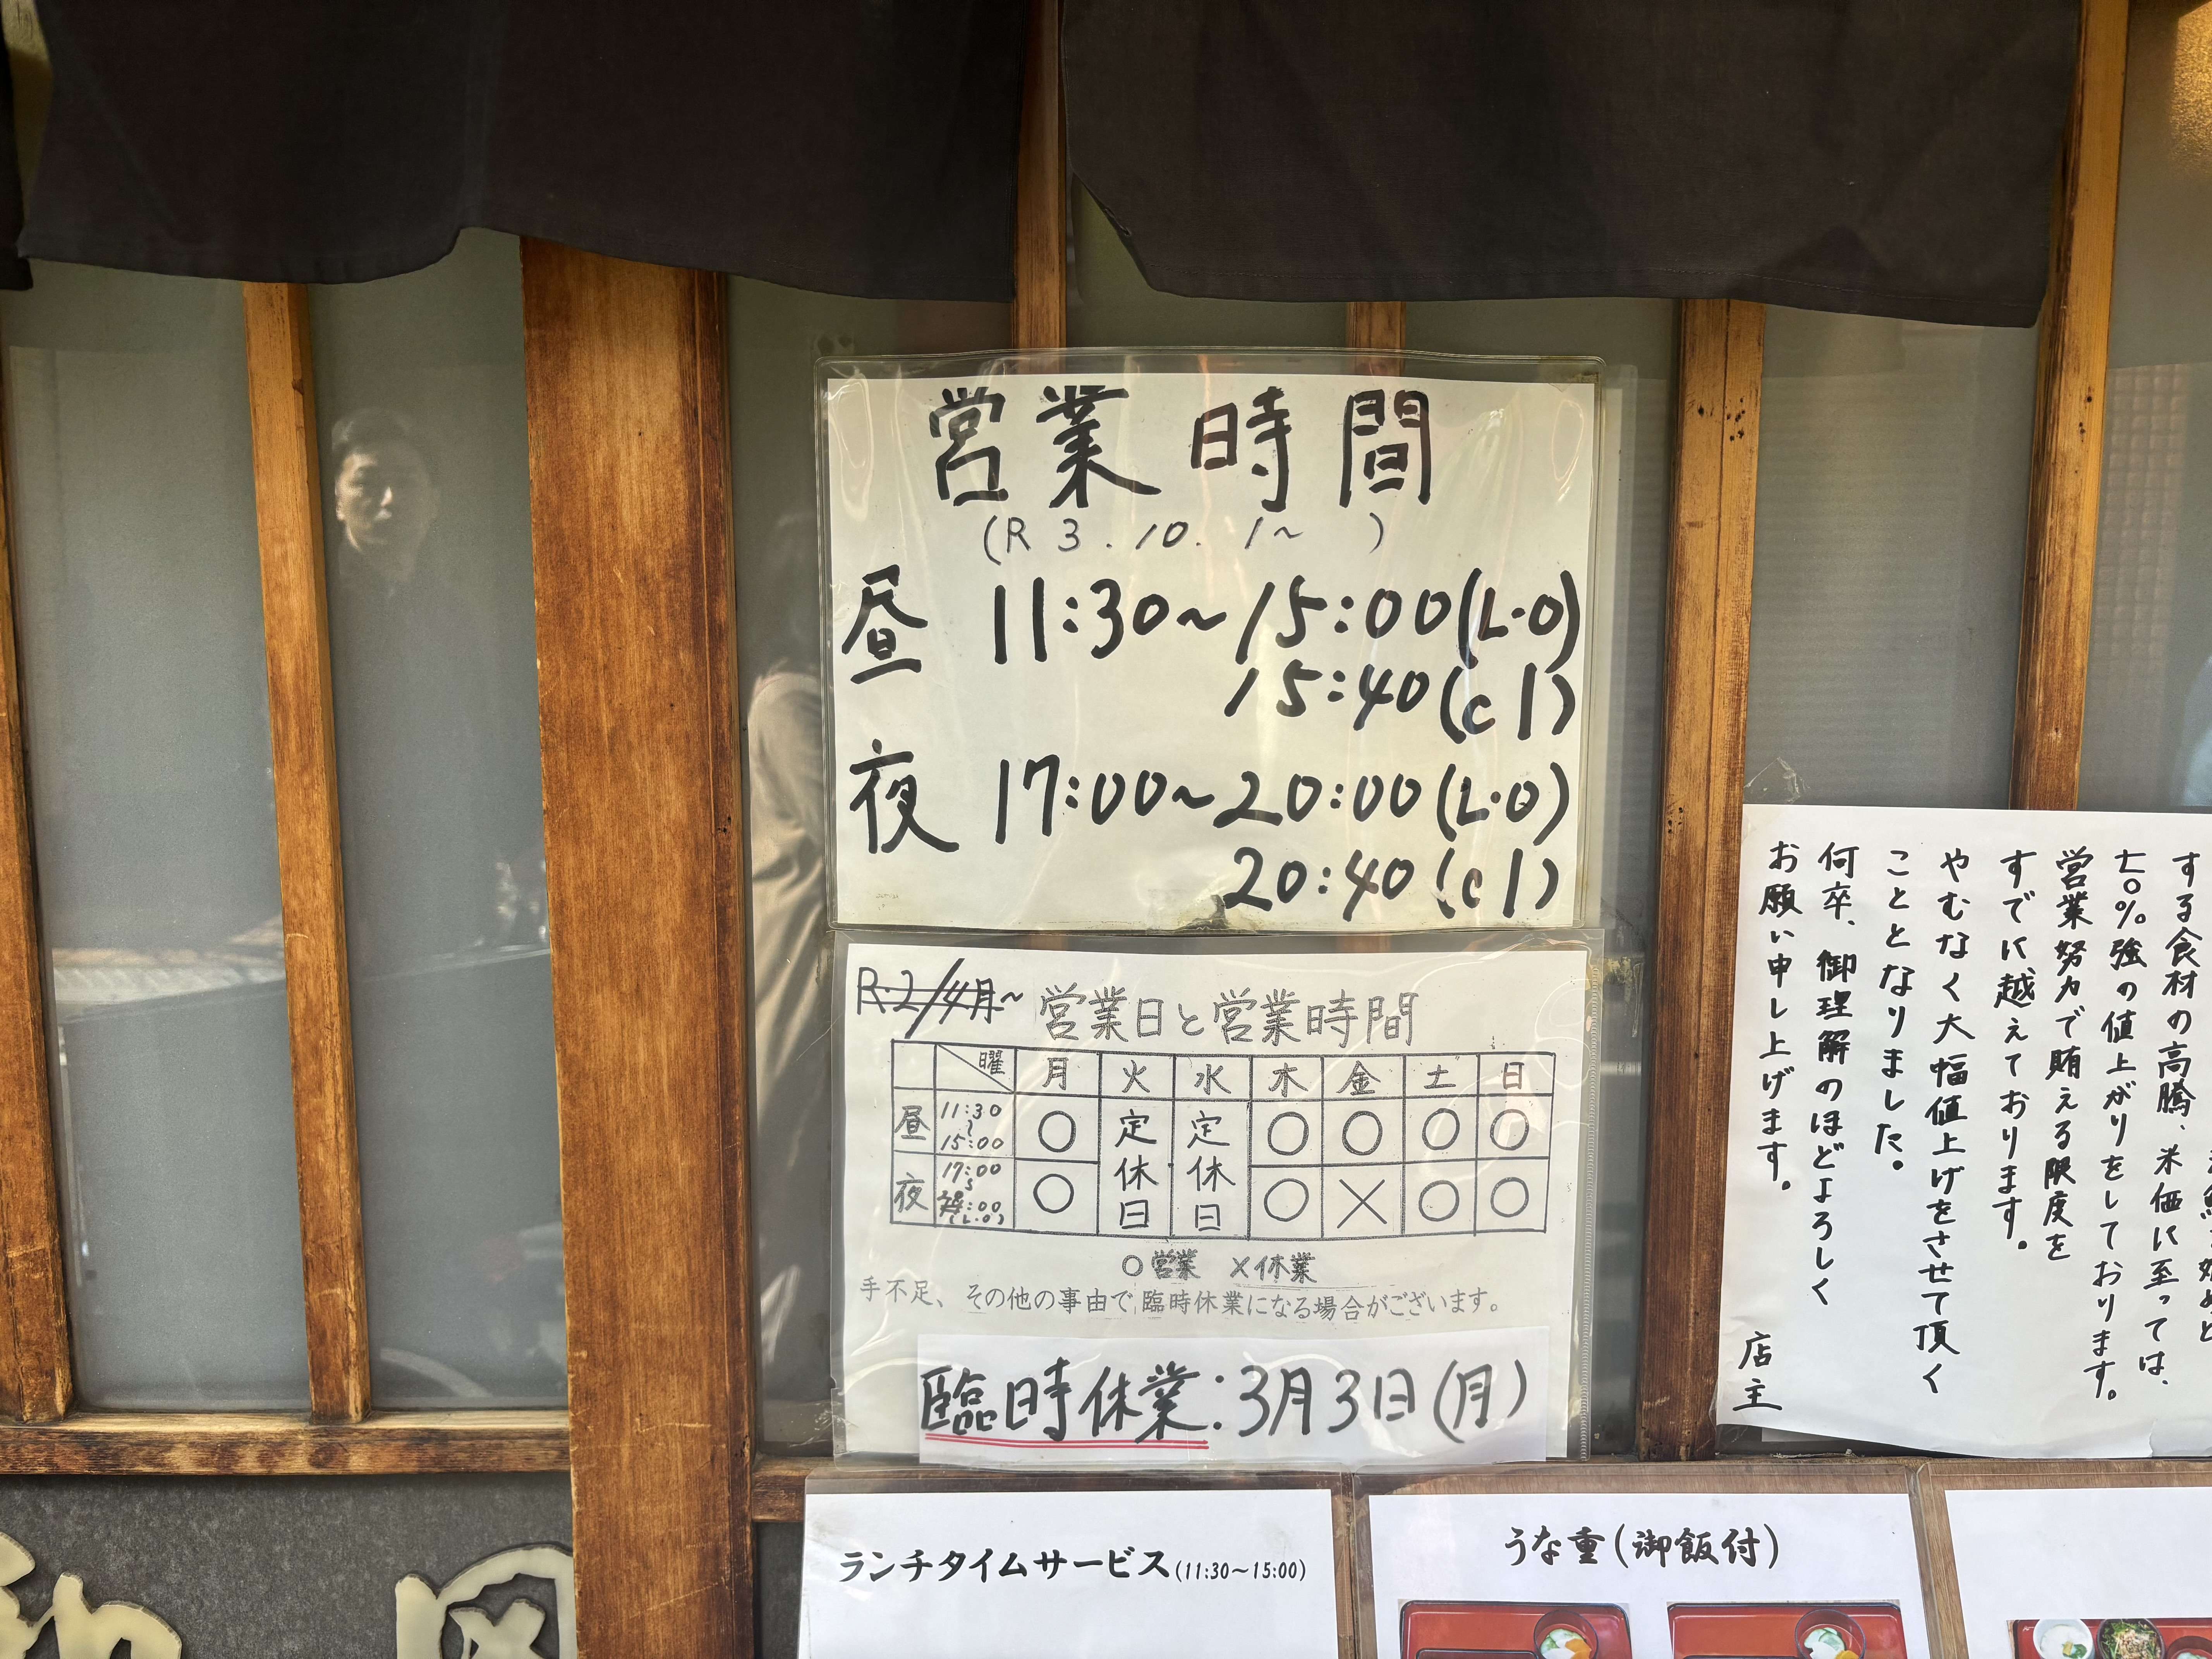 営業時間
(R3.10.1~ )
昼 11:30~15:00(L・O)
15:40(cl)
夜 17:00~20:00(L・O)
20:40(cl)
R.2/4月~ 営業日と営業時間
曜 月 火 水 木 金 土 日
昼 11:30~15:00 〇 定休日 定休日 〇 〇 〇 〇
夜 17:00~ :00(L・O) 〇 〇 × 〇 〇
〇営業 ×休業
手不足、その他の事由で臨時休業になる場合がございます。
臨時休業:3月3日(月)
する食材の高騰、米価に至っては、
七〇%強の値上がりをしております。
営業努力で賄える限度を
すでに越えております。
やむなく大幅値上げをさせて頂く
こととなりました。
何卒、御理解のほどよろしく
お願い申し上げます。
店主
ランチタイムサービス(11:30~15:00)
うな重(御飯付)